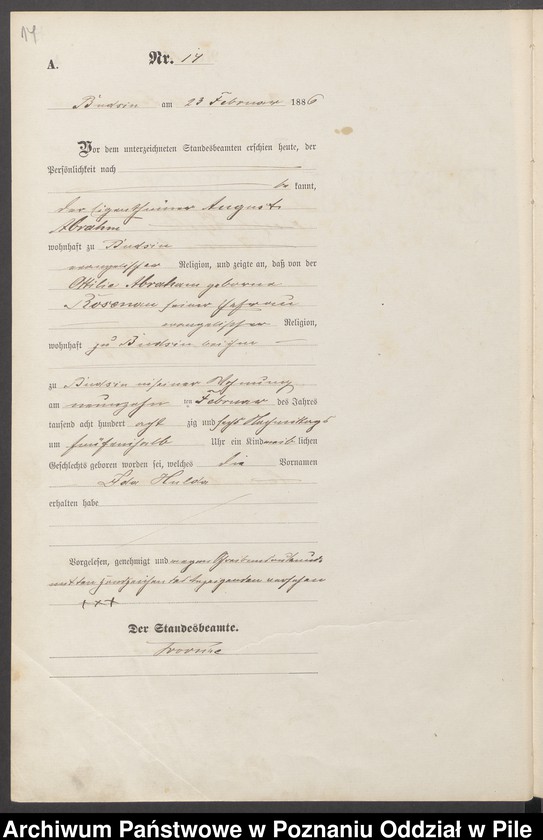 14
A.
Nr. 14
Budsin am 23 Februar 1886
Vor dem unterzeichneten Standesbeamten erschien heute, der
Persönlichkeit nach
be kannt,
der Eigenthümer August
Abraham
wohnhaft zu Budsin
evangelischer Religion, und zeigte an, daß von der
Ottilie Abraham geborene
Rosenau seiner Ehefrau
evangelischer Religion,
wohnhaft zu Budsin bei ihm
zu Budsin in seiner Wohnung
am neunzehn ten Februar des Jahres
tausend acht hundert acht zig und sechs Nachmittags
um fünfeinhalb Uhr ein Kind weib lichen
Geschlechts geboren worden sei, welches die Vornamen
Ida Hulda
erhalten habe
Vorgelesen, genehmigt und wegen
mit den Handzeichen des Anzeigenden versehen
+ + +
Der Standesbeamte.
Archiwum Państwowe w Poznaniu Oddział w Pile